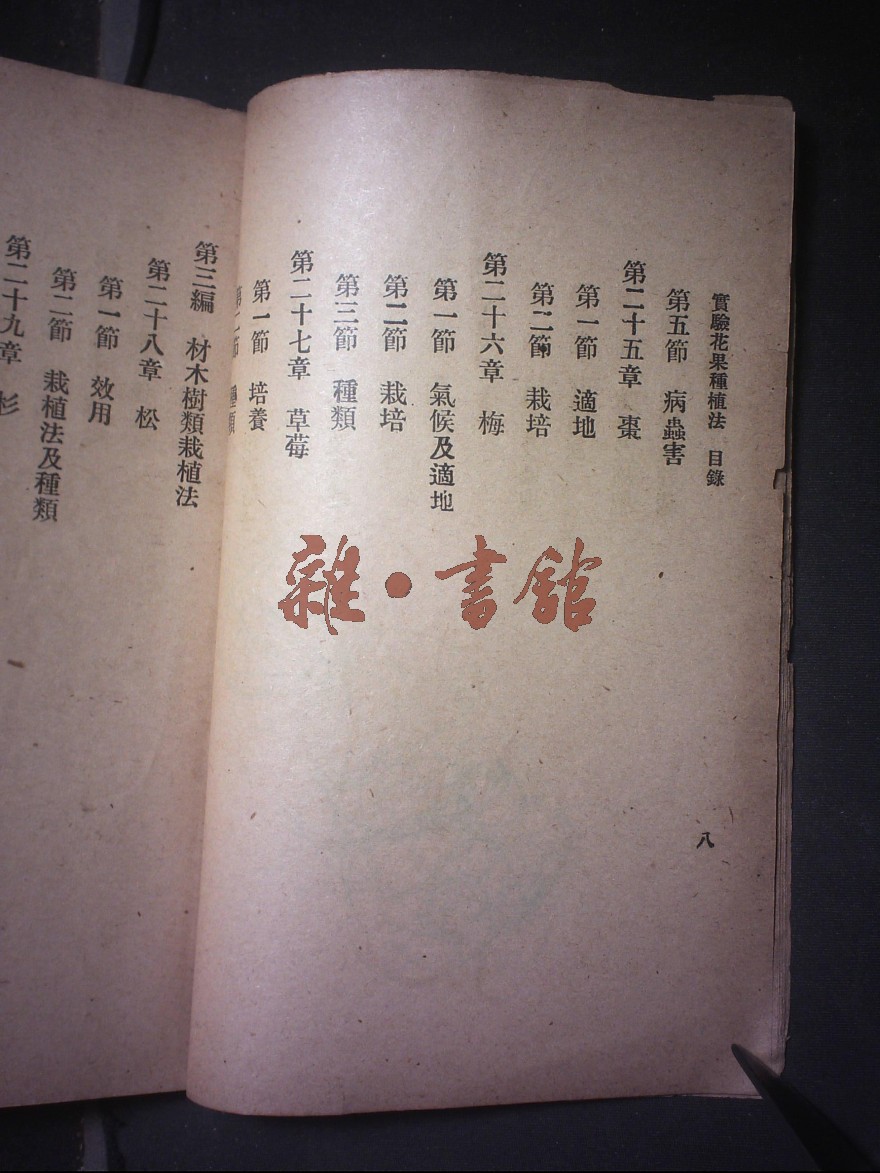 實驗花果種植法 目錄
八
第五節 病蟲害
第二十五章 棗
第一節 適地
第二節 栽培
第二十六章 梅
第一節 氣候及適地
第二節 栽培
第三節 種類
第二十七章 草莓
第一節 培養
第二節 種類
第三編 材木樹類栽植法
第二十八章 松
第一節 效用
第二節 栽植法及種類
第二十九章 杉
雜·書館